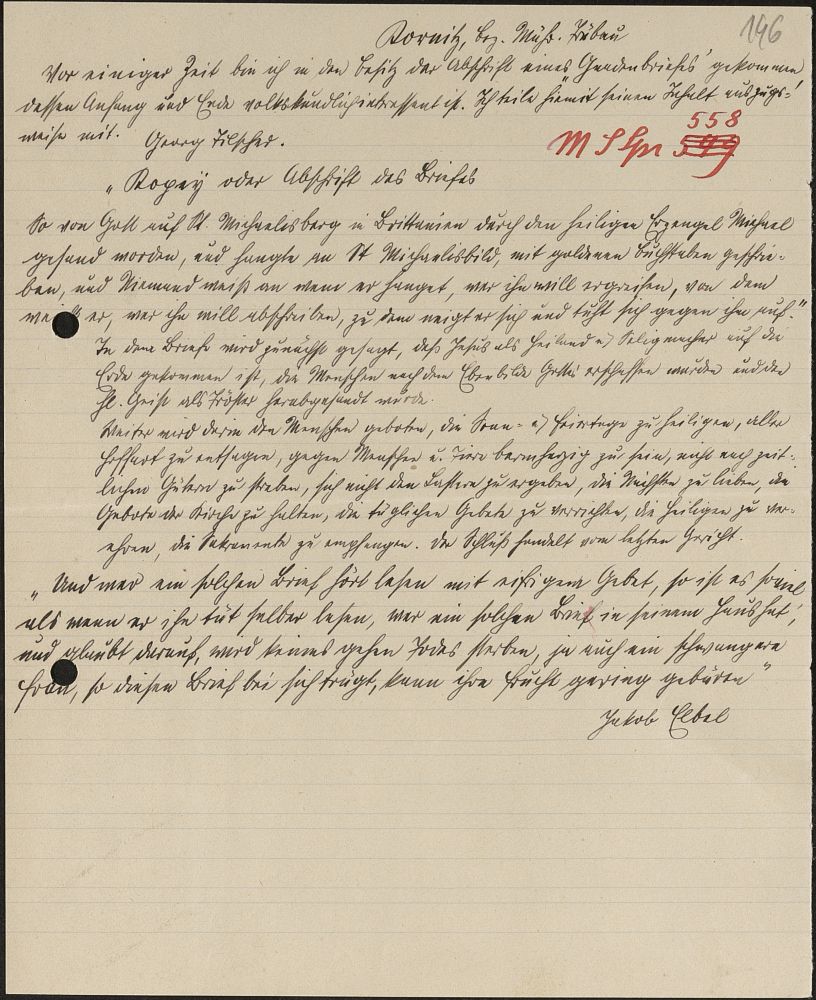 146
Kornitz, Bez. Mähr. Trübau
Vor einiger Zeit bin ich in den Besitz der Abschrift eines „Gnadenbriefes" gekommen,
dessen Anfang und Ende volkskundlich interessant ist. Ich teile hiemit seinen Inhalt auszugs-
weise mit. Georg Tilscher.
558
M S Spr 599
„Kopey oder Abschrift des Briefes
So von Gott auf St. Michaelisberg in Brittanien durch den heiligen Erzengel Michael
gesand worden, und hangte an St Michaelisbild, mit goldenen Buchstaben geschrie-
ben, und Niemand weiß an wem er hanget, wer ihn will ergreifen, von dem
er, wer ihn will abschreiben, zu dem neigt er sich und tuht sich gegen ihm auf."
In dem Briefe wird zunächst gesagt, daß Jesus als Heiland u) Seligmacher auf die
Erde gekommen ist, die Menschen nach dem Ebenbilde Gottes erschaffen wurden und der
hl. Geist als Tröster herabgesandt wurde.
Weiter wird darin den Menschen geboten, die Sonn- u) Feiertage zu heiligen, aller
Hoffart zu entsagen, gegen Menschen u. Tiere barmherzig zu sein, nicht nach zeit-
lichen Gütern zu streben, sich nicht den Lastern zu ergeben, die Nächsten zu lieben, die
Gebote der Kirche zu halten, die täglichen Gebete zu verrichten, die Heiligen zu ver-
ehren, die Sakramente zu empfangen. Der Schluß handelt vom letzten Gericht.
„Und wer ein solchen Brief hört lesen mit eifrigem Gebet, so ist es soviel
als wenn er ihn tut selber lesen, wer ein solchen Brief in seinem Haus hat,
und glaubt darauf, wird keines gehen Todes sterben, ja auch ein schwangere
Frau, so diesen Brief bei sich trägt, kann ihre Frucht gering gebären"
Jakob Elbel